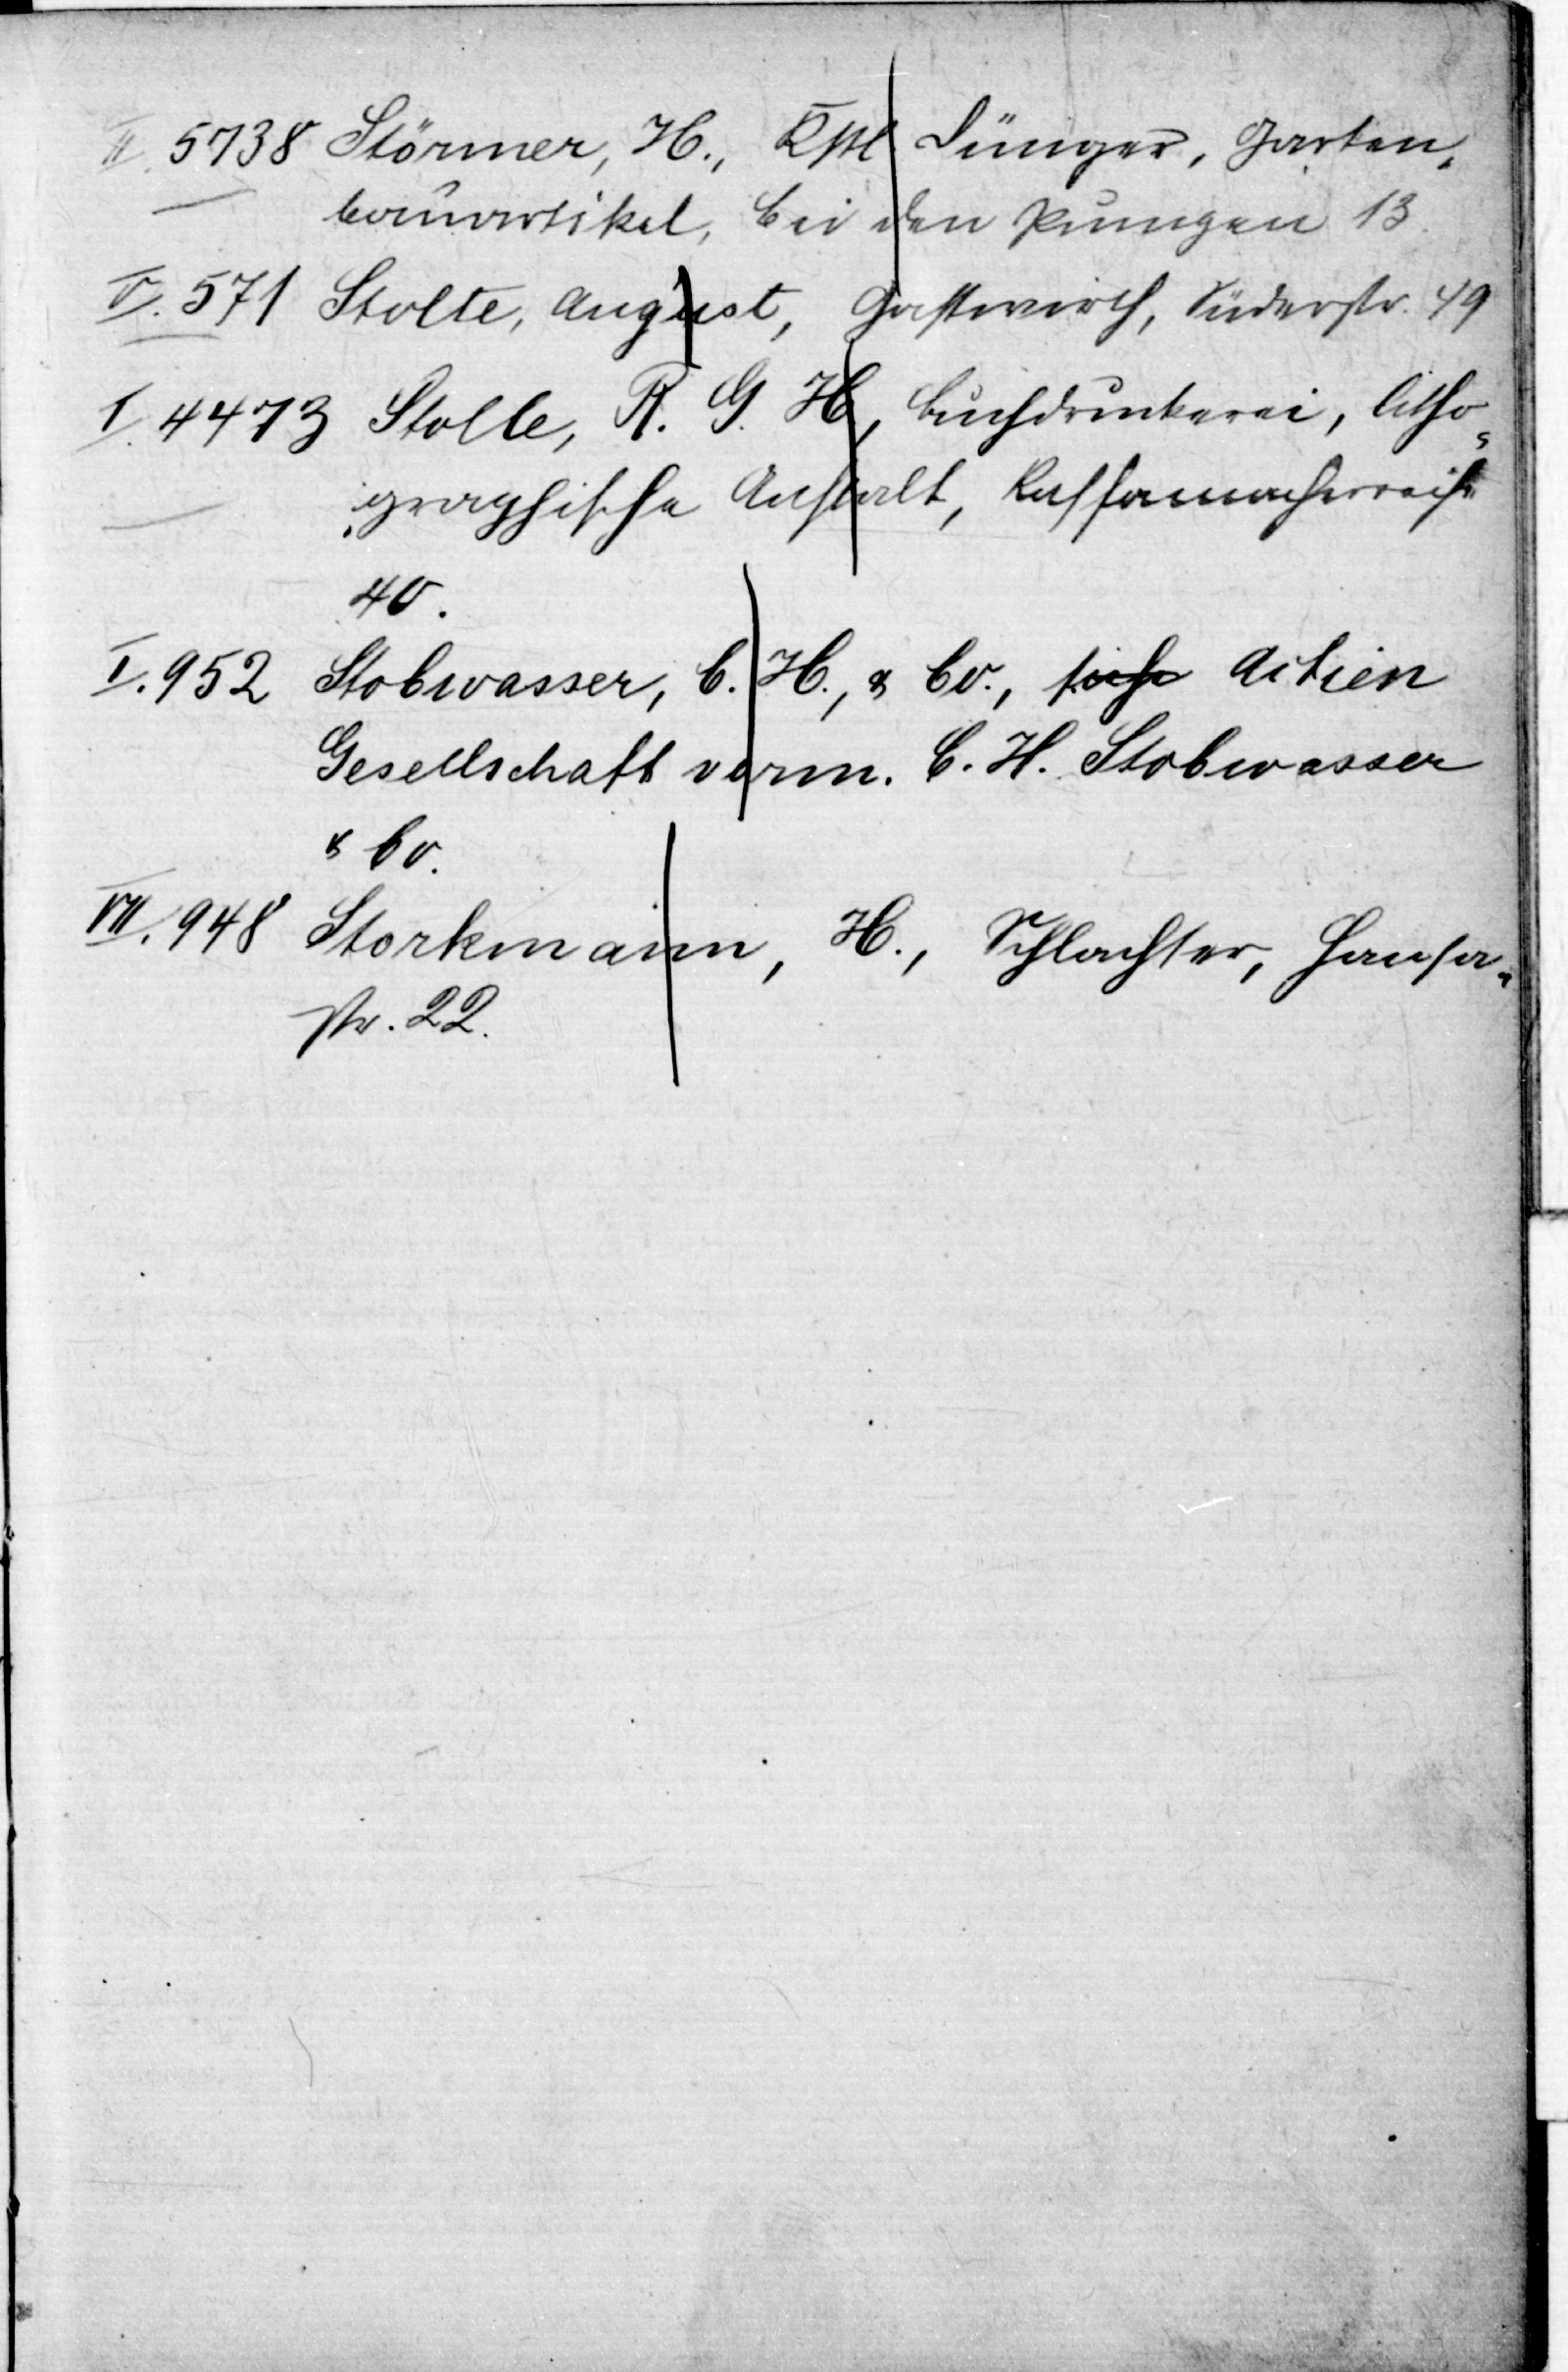 II. 5738 Störmer, H., Kstl Dünger, Garten-
bauartikel, bei den Pumpen 13.
V. 571 Stolte, August, Gastwirth, Süderstr. 49
I. 4473 Stolle, R. G. H, Buchdruckerei, litho-
graphische Anstalt, Kaffamacherreihe
40.
I. 952 Stobwasser, C. H., & Co., siehe Actien
Gesellschaft vorm. C. H. Stobwasser
& Co.
VII. 948 Storkmann, H., Schlachter, Hansa-
str. 22.